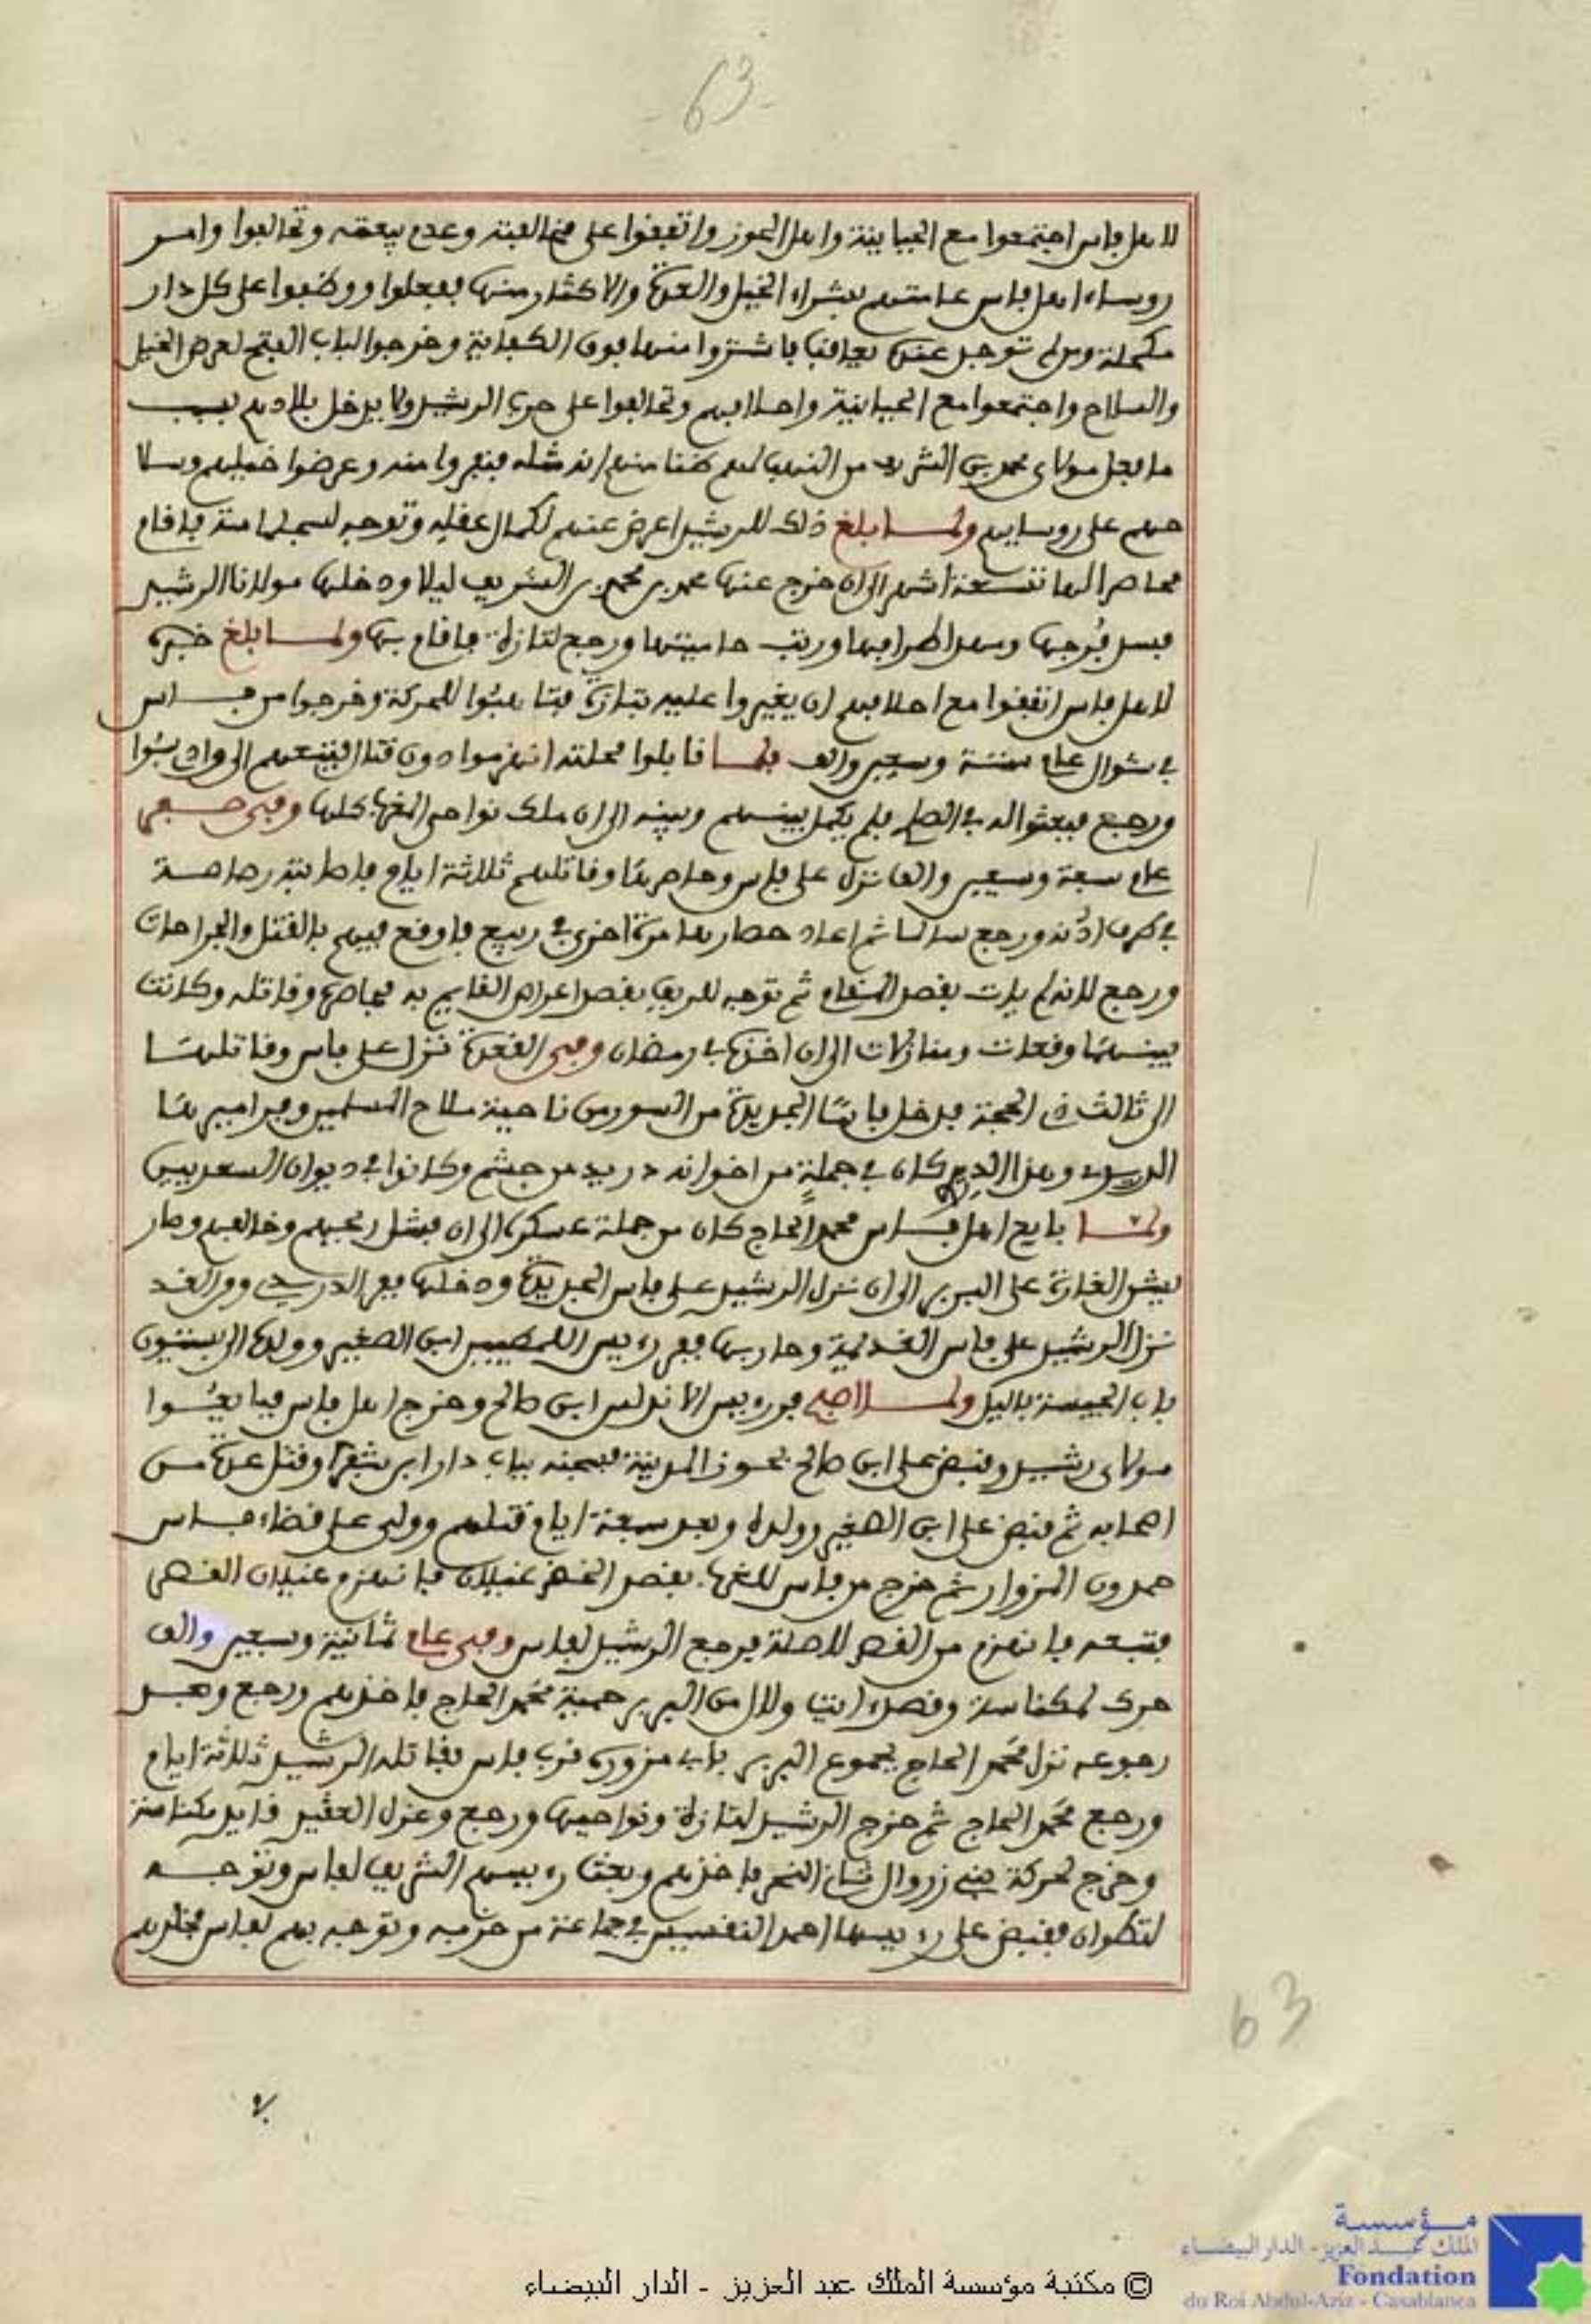 63
لاهل فاس اجتمعوا مع الحياينة واهل الحوز واتفقوا على مخالفته وعدم بيعته وتحالفوا وامر
روساء اهل فاس عامتهم بشراء الخيل والعدة والاكثار منها ففعلوا ووظفوا على كل دار
مكحلة ومن لم توجد عنده يعاقب فاشتروا منها فوق الكفاية وخرجوا لباب الفتح لعرض الخيل
والسلاح واجتمعوا مع الحياينة واحلافهم وتحالفوا على حرب الرشيد ولا يدخل بلادهم بسبب
ما فعل مولاي محمد بن الشريف من النهب لهم ظنا منهم انه مثله فنفروا منه وعرضوا خيلهم وسلا
حهم على روسايهم ولما بلغ ذلك للرشيد اعرض عنهم لكمال عقله وتوجه لسجلماسة فاقام
محاصرا لها تسعة اشهر الى ان خرج عنها محمد بن محمد بن الشريف ليلا ودخلها مولانا الرشيد
فسد فُرجها وسد اطرافها ورتب حاميتها ورجع لتازة فاقام بها ولما بلغ خبره
لاهل فاس اتفقوا مع احلافهم ان يغيروا عليه بتازة فتاهبوا للحركة وخرجوا من فاس
في شوال عام ستة وسبعين والف فلما قابلوا محلته انهزموا دون قتال فتبعهم الى واد سبوا
ورجع فبعثوا له في الصلح فلم يكمل بينهم وبينه الى ان ملك نواحي المغرب كلها وفي صفر
عام سبعة وسبعين والف نزل على فاس وحاصرها وقاتلهم ثلاثة ايام فاصابته رصاصة
في طرف اذنه ورجع سالما ثم اعاد حصارها مرة اخرى في ربيع فاوقع فيهم بالقتل والجراحات
ورجع لانه لم يات بقصد المقام ثم توجه للريف بقصد اعراص القايم به فحاصره وقاتله وكانت
بينهما وقعات ومنازلات الى ان اخذه في رمضان وفي القعدة نزل على فاس وقاتلها
الى ثالث ذي الحجة فدخل فاسا الجديدة من السور من ناحية ملاح المسلمين وفر اميرها
الدريدي وهذا الدريدي كان في جملة من اخوانه دريد من جشم وكانوا في ديوان السعديين
ولما بايع اهل فاس محمد الحاج كان من جملة عسكره الى ان فشل ريحهم وخالفهم وصار
يشن الغارة على البربر الى ان نزل الرشيد على فاس الجديدة ودخلها ففر الدريدي ومن الغد
نزل الرشيد على فاس القديمة وحاربها ففر رءيس اللمطيين ابن الصغير وولده الى بستيون
باب الجيسة بالليل ولما اصبح فر رءيس الاندلس ابن صالح وخرج اهل فاس فبايعوا
مولاي رشيد وقبض على ابن صالح بحوز المدينة فسجنه بباب دار ابن شقرا وقتل عدة من
اصحابه ثم قبض على ابن الصغير وولده وبعد سبعة ايام قتلهم وولى على قضاء فاس
حمدون المزوار ثم خرج من فاس للغرب بقصد الخضر غيلان فانهزم غيلان القصر
فتبعه فانهزم من القصر لاصلة فرجع الرشيد لفاس وفي عام ثمانية وسبعين والف
حرك لمكناسة وقصد ايت ولال من البربر حمية محمد الحاج فاخذهم ورجع وبعد
رجوعه نزل محمد الحاج بجموع البربر باب مزورة قرب فاس فقاتله الرشيد ثلاثة ايام
ورجع محمد الحاج ثم خرج الرشيد لتازة ونواحيها ورجع وعزل العقيد قايد مكناسة
وخرج لحركة بني زروال شان النحر فاخذهم وبعث رءيسهم الشريف لفاس وتوجه
لتطوان فقبض على رءيسها احمد النقسيس في جماعة من حزبه وتوجه بهم لفاس فخلدهم
63
مؤسسة
الملك عبد العزيز - الدار البيضاء
Fondation
du Roi Abdul-Aziz - Casablanca
© مكتبة مؤسسة الملك عبد العزيز - الدار البيضاء